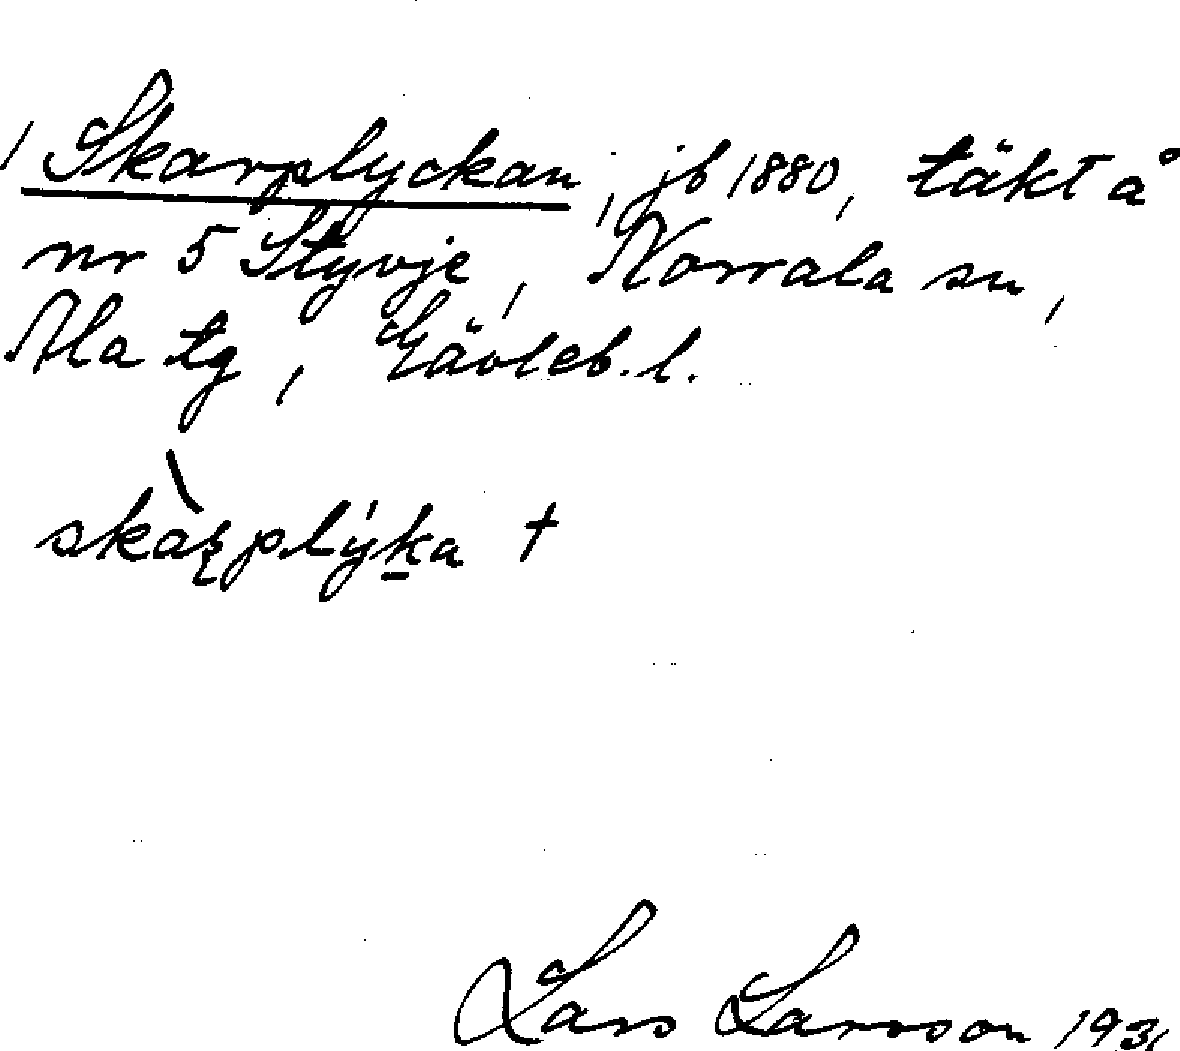 / Skarplyckan, jb 1880, täkt å
nr 5 Styvje, Norrala sn,
Ala tg, Gävleb. l.
skàrplýka †
Lars Larsson